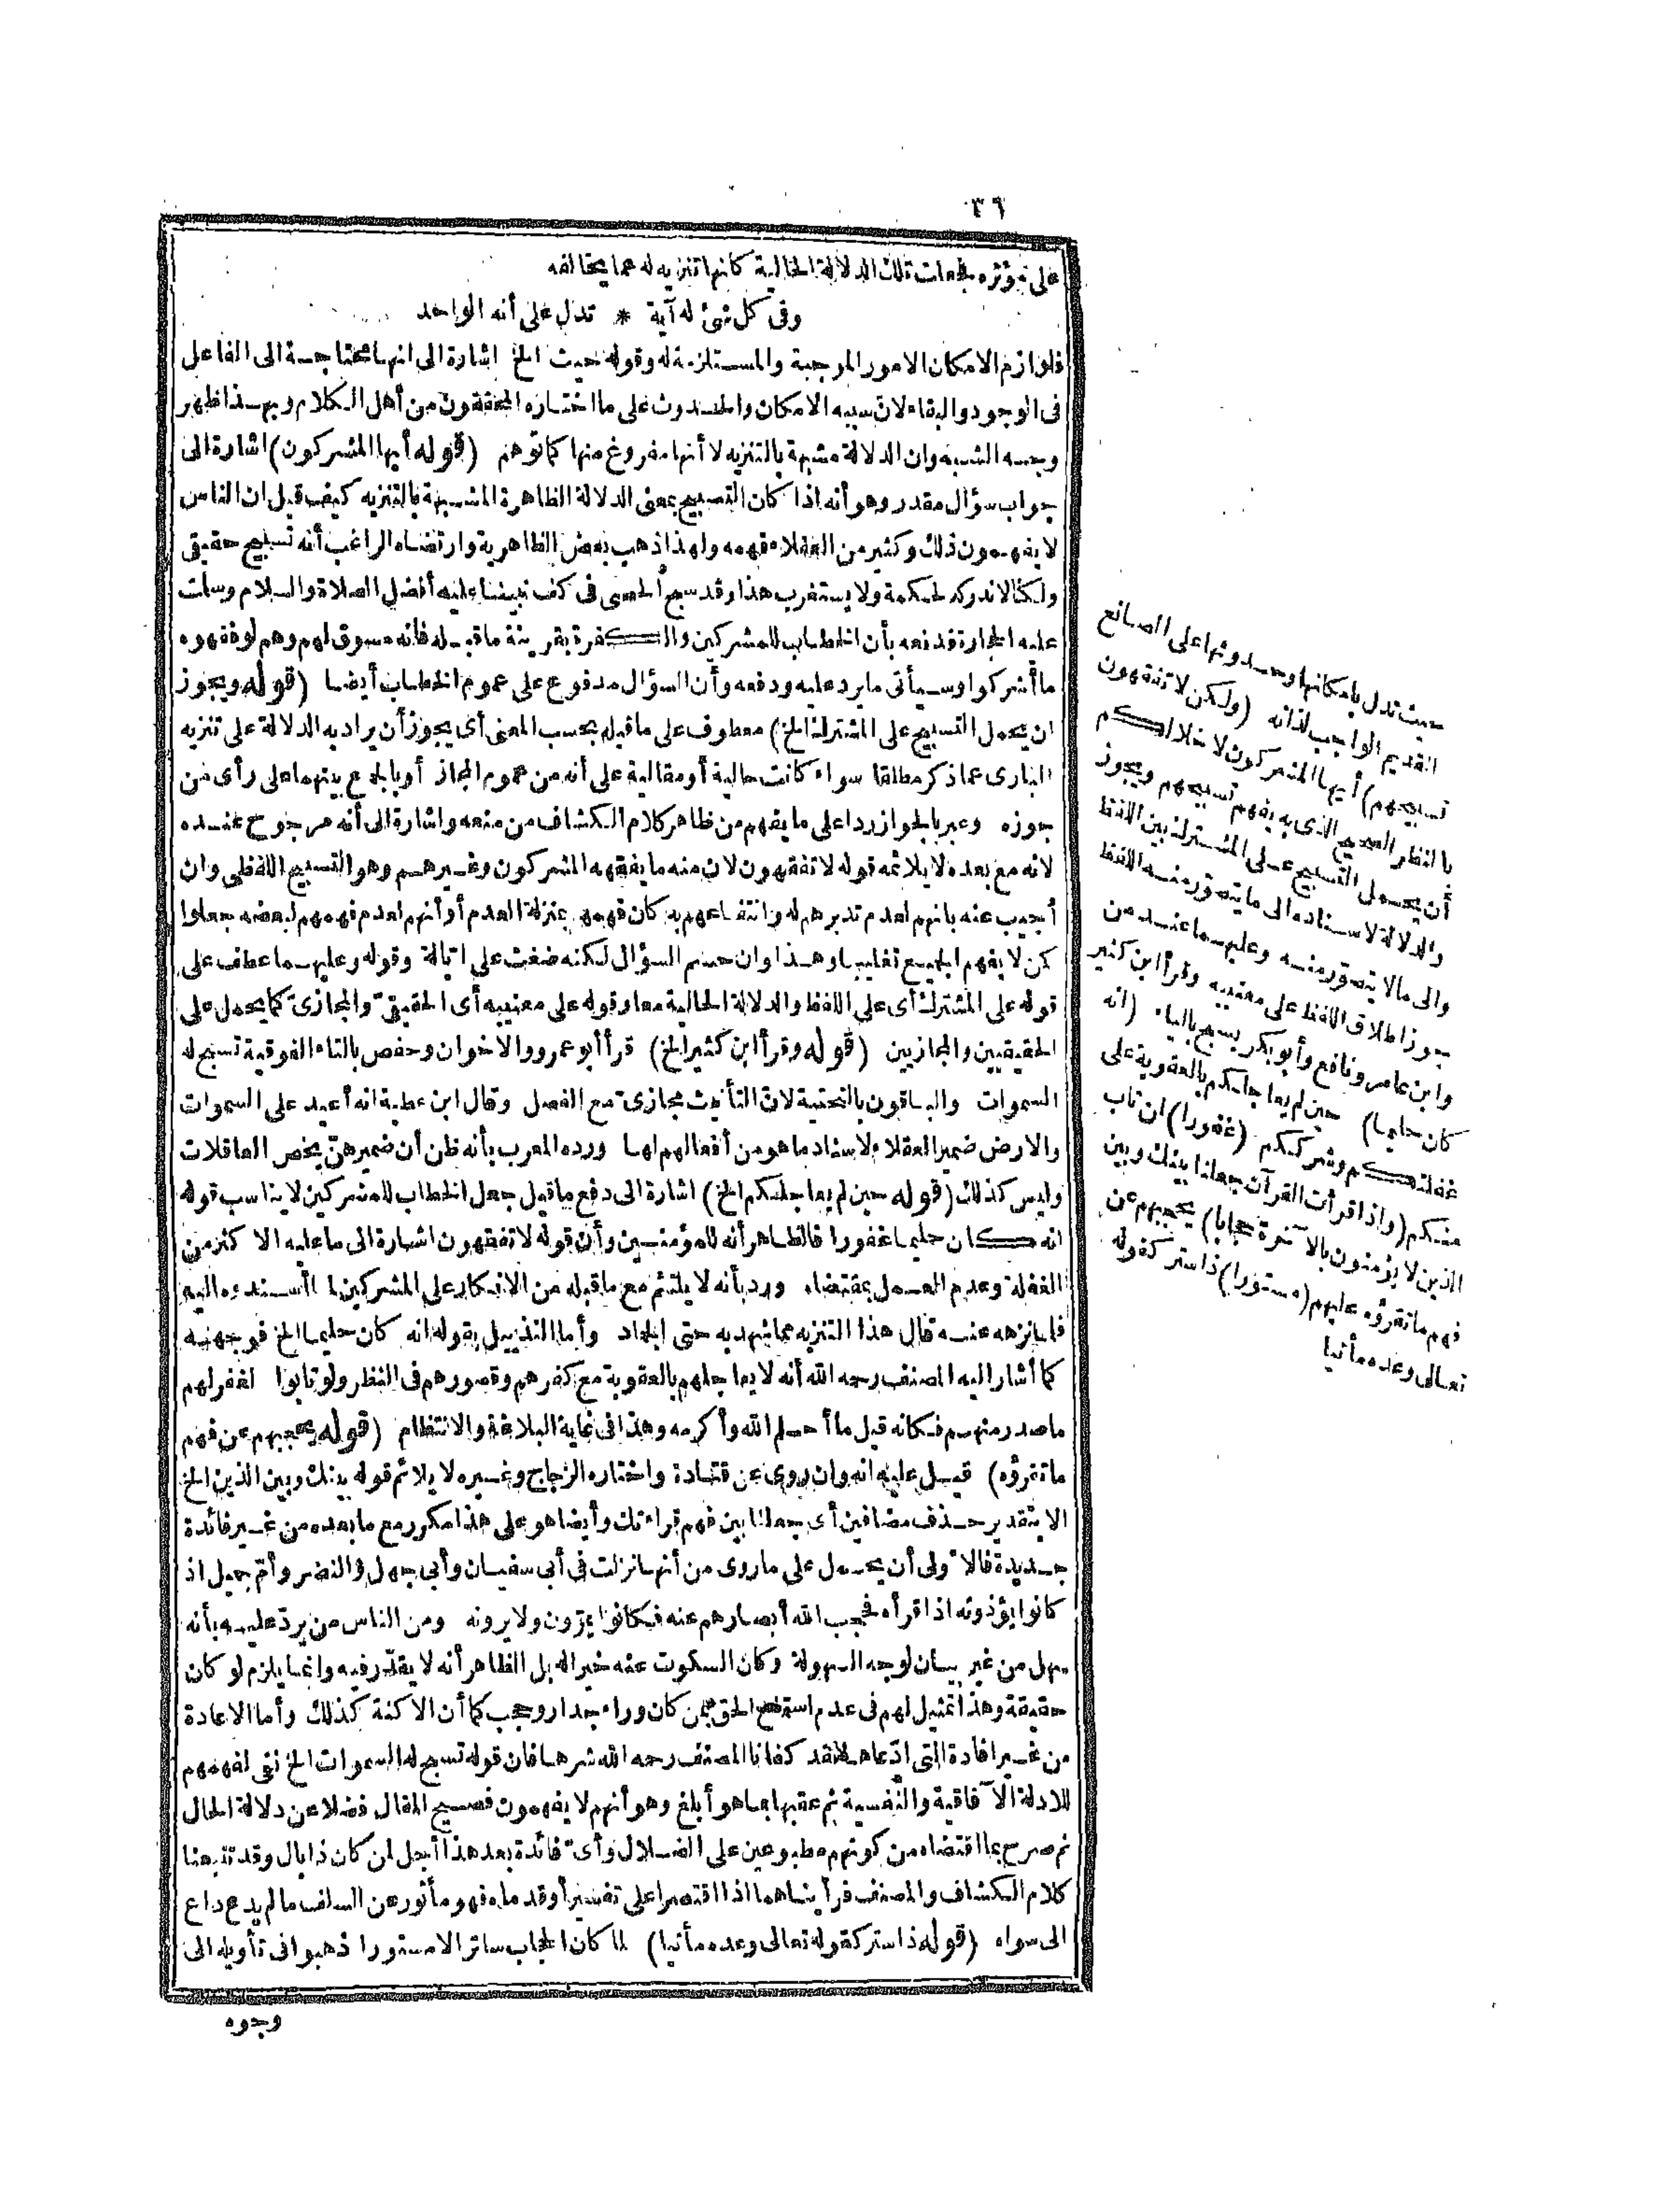 ٣٦
على مؤثره فجعلت تلك الدلالة الحالية كأنها تنزيه له عما يخالفه
وفى كل شئ له آية * تدل على أنه الواحد
فلوازم الامكان الامور الموجبة والمستلزمة له وقوله حيث الخ اشارة الى انها محتاجة الى الفاعل
فى الوجود والبقاء لان سببه الامكان والحدوث على ما اختاره المحققون من أهل الكلام وبهذا ظهر
وجه الشبه وان الدلالة مشبهة بالتنزيه لا أنها مفروغ منها كما توهم (قوله أيها المشركون) اشارة الى
جواب سؤال مقدر وهو أنه اذا كان التسبيح بمعنى الدلالة الظاهرة المشبهة بالتنزيه كيف قيل ان الناس
لا يفهمون ذلك وكثير من العقلاء فهمه ولهذا ذهب بعض الظاهرية وارتضاه الراغب أنه تسبيح حقيقى
ولكنا لا ندركه لحكمة ولا يستغرب هذا وقد سبح الحصى فى كف نبينا عليه أفضل الصلاة والسلام وسلمت
عليه الحجارة فدفعه بأن الخطاب للمشركين والكفرة بقرينة ما قبله فانه مسوق لهم وهم لو فقهوه
ما أشركوا وسيأتى ما يرد عليه ودفعه وأن السؤال مدفوع على عموم الخطاب أيضا (قوله ويجوز
ان يحمل التسبيح على المشترك الخ) معطوف على ما قبله بحسب المعنى أى يجوز أن يراد به الدلالة على تنزيه
البارى عما ذكر مطلقا سواء كانت حالية أو مقالية على أنه من عموم المجاز أو بالجمع بينهما على رأى من
جوزه وعبر بالجواز ردا على ما يفهم من ظاهر كلام الكشاف من منعه واشارة الى أنه مرجوح عنده
لانه مع بعده لا يلائمه قوله لا تفقهون لان منه ما يفقهه المشركون وغيرهم وهو التسبيح اللفظى وان
أجيب عنه بانهم لعدم تدبرهم له وانتفاعهم به كان فهمهم بمنزلة العدم أو أنهم لعدم فهمهم لبعضه جعلوا
كمن لا يفهم الجميع تغليبا وهذا وان حسم السؤال لكنه ضغث على ابالة وقوله وعليهما عطف على
قوله على المشترك أى على اللفظ والدلالة الحالية معا وقوله على معنييه أى الحقيقىّ والمجازىّ كما يحمل على
الحقيقيين والمجازيين (قوله وقرأ ابن كثير الخ) قرأ أبو عمرو والاخوان وحفص بالتاء الفوقية تسبح له
السموات والباقون بالتحتية لان التأنيث مجازىّ مع الفصل وقال ابن عطية انه أعيد على السموات
والارض ضمير العقلاء لاسناد ما هو من أفعالهم لها ورده المعرب بأنه ظن أن ضمير هنّ يخص العاقلات
وليس كذلك (قوله حين لم يعاجلكم الخ) اشارة الى دفع ما قيل جعل الخطاب للمشركين لا يناسب قوله
انه كان حليما غفورا فالظاهر أنه للمؤمنين وأن قوله لا تفقهون اشارة الى ما عليه الاكثر من
الغفلة وعدم العمل بمقتضاه ورد بأنه لا يلتئم مع ما قبله من الانكار على المشركين لما أسندوه اليه
فلما نزهه عنه قال هذا التنزيه مما شهد به حتى الجماد وأما التذييل بقوله انه كان حليما الخ فوجهه
كما أشار اليه المصنف رحمه الله أنه لا يعاجلهم بالعقوبة مع كفرهم وقصورهم فى النظر ولو تابوا لغفر لهم
ما صدر منهم فكانه قيل ما أحلم الله وأكرمه وهذا فى غاية البلاغة والانتظام (قوله يحجبهم عن فهم
ما تقرؤه) قيل عليه انه وان روى عن قتادة واختاره الزجاج وغيره لا يلائم قوله بينك وبين الذين الخ
الا بتقدير حذف مضافين أى جعلنا بين فهم قراءتك وأيضا هو على هذا مكرر مع ما بعده من غير فائدة
جديدة فالاولى أن يحمل على ما روى من أنها نزلت فى أبى سفيان وأبى جهل والنضر وأمّ جميل اذ
كانوا يؤذونه اذا قرأه فحجب الله أبصارهم عنه فكانوا يمرّون ولا يرونه ومن الناس من يردّ عليه بأنه
سهل من غير بيان لوجه السهولة وكان السكوت عنه خيرا له بل الظاهر أنه لا يقدّر فيه وانما يلزم لو كان
حقيقة وهذا تمثيل لهم فى عدم استماع الحق بمن كان وراء جدار وحجب كما أن الاكنة كذلك وأما الاعادة
من غير افادة التى ادّعاها فقد كفانا المصنف رحمه الله شرها فان قوله تسبح له السموات الخ نفى لفهمهم
للادلة الآفاقية والنفسية ثم عقبها بما هو أبلغ وهو أنهم لا يفهمون فصيح المقال فضلا عن دلالة الحال
ثم صرح بما اقتضاه من كونهم مطبوعين على الضلال وأىّ فائدة بعد هذا أجل لمن كان ذا بال وقد تتبعنا
كلام الكشاف والمصنف فرأيناهما اذا اقتصرا على تفسير أو قدماه فهو مأثور عن السلف ما لم يدع داع
الى سواه (قوله ذا ستر كقوله تعالى وعده مأتيا) لما كان الحجاب ساترا لا مستورا ذهبوا فى تأويله الى
وجوه
حيث تدل بامكانها وحدوثها على الصانع
القديم الواجب لذاته (ولكن لا تفقهون
تسبيحهم) أيها المشركون لاخلالكم
بالنظر الصحيح الذى به يفهم تسبيحهم ويجوز
أن يحمل التسبيح على المشترك بين اللفظ
والدلالة لاسناده الى ما يتصور منه اللفظ
والى ما لا يتصور منه وعليهما عند من
جوز اطلاق اللفظ على معنييه وقرأ ابن كثير
وابن عامر ونافع وأبو بكر يسبح بالياء (انه
كان حليما) حين لم يعاجلكم بالعقوبة على
غفلتكم وشرككم (غفورا) لمن تاب
منكم (واذا قرأت القرآن جعلنا بينك وبين
الذين لا يؤمنون بالآخرة حجابا) يحجبهم عن
فهم ما تقرؤه عليهم (مستورا) ذا ستر كقوله
تعالى وعده مأتيا